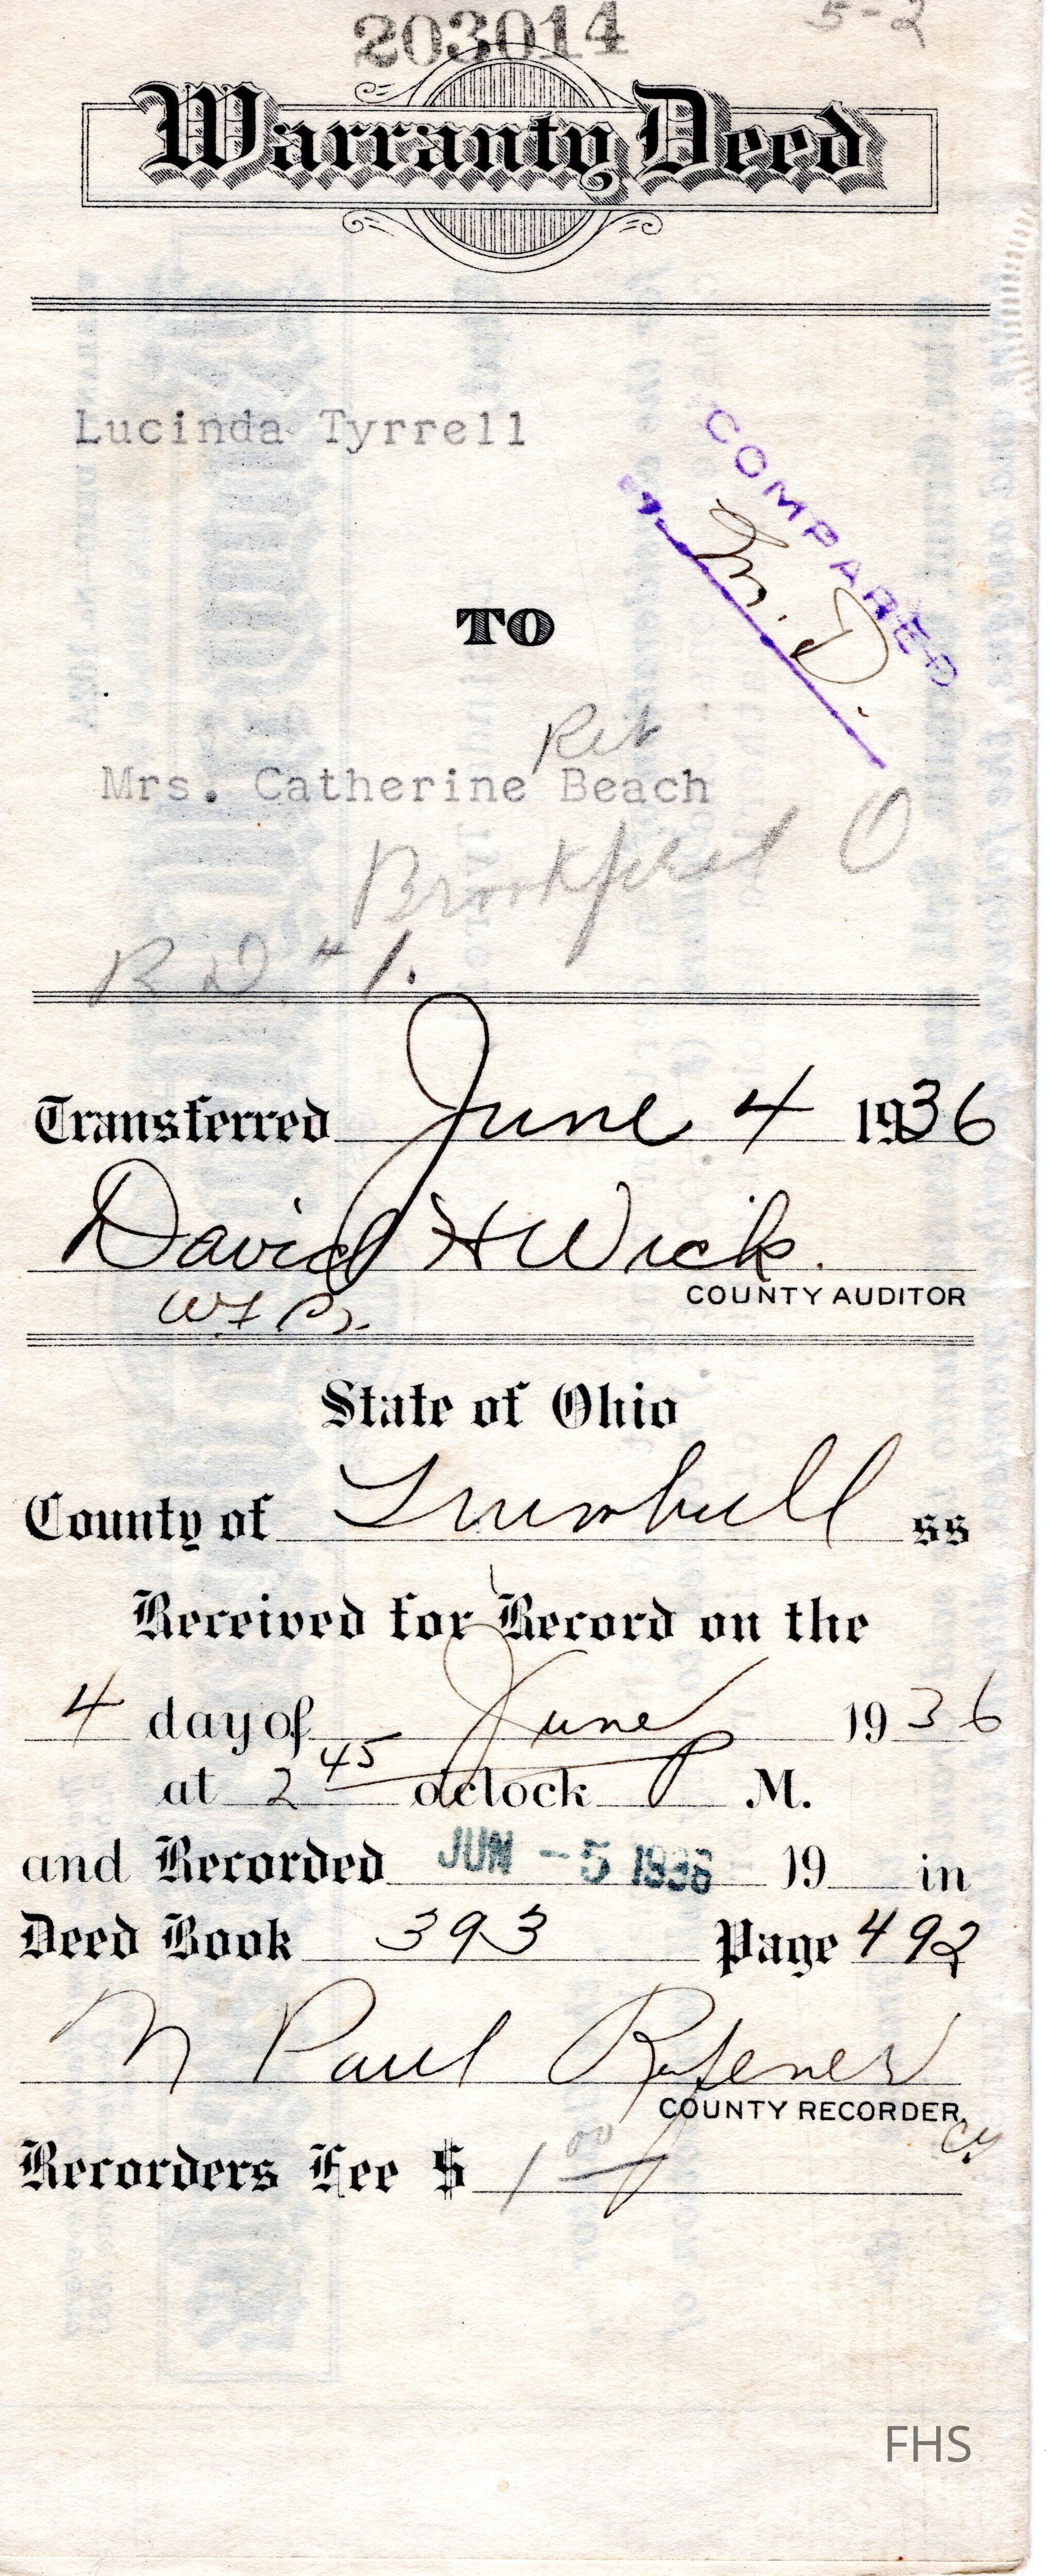 203014
5-2
Warranty Deed
Lucinda Tyrrell
COMPARED
M.D.
TO
Ret
Mrs. Catherine Beach
Brookfield O
R D #1.
Transferred June 4 1936
David H Wick.
COUNTY AUDITOR
State of Ohio
County of Trumbull ss
Received for Record on the
4 day of June 1936
at 2 45 o'clock P M.
and Recorded JUN -5 1936 19 in
Deed Book 393 Page 492
N Paul
COUNTY RECORDER
Recorders Fee $ 1 00
FHS